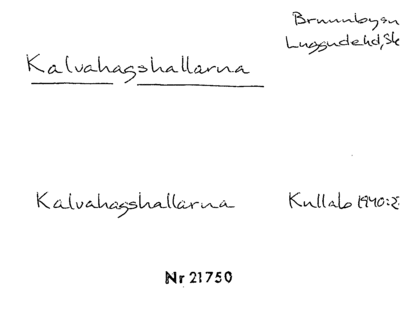 Brunnbysn
Luggudehd, Sk
Kalvahagshallarna
Kalvahagshallarna Kullabo 1940:2
Nr 21750